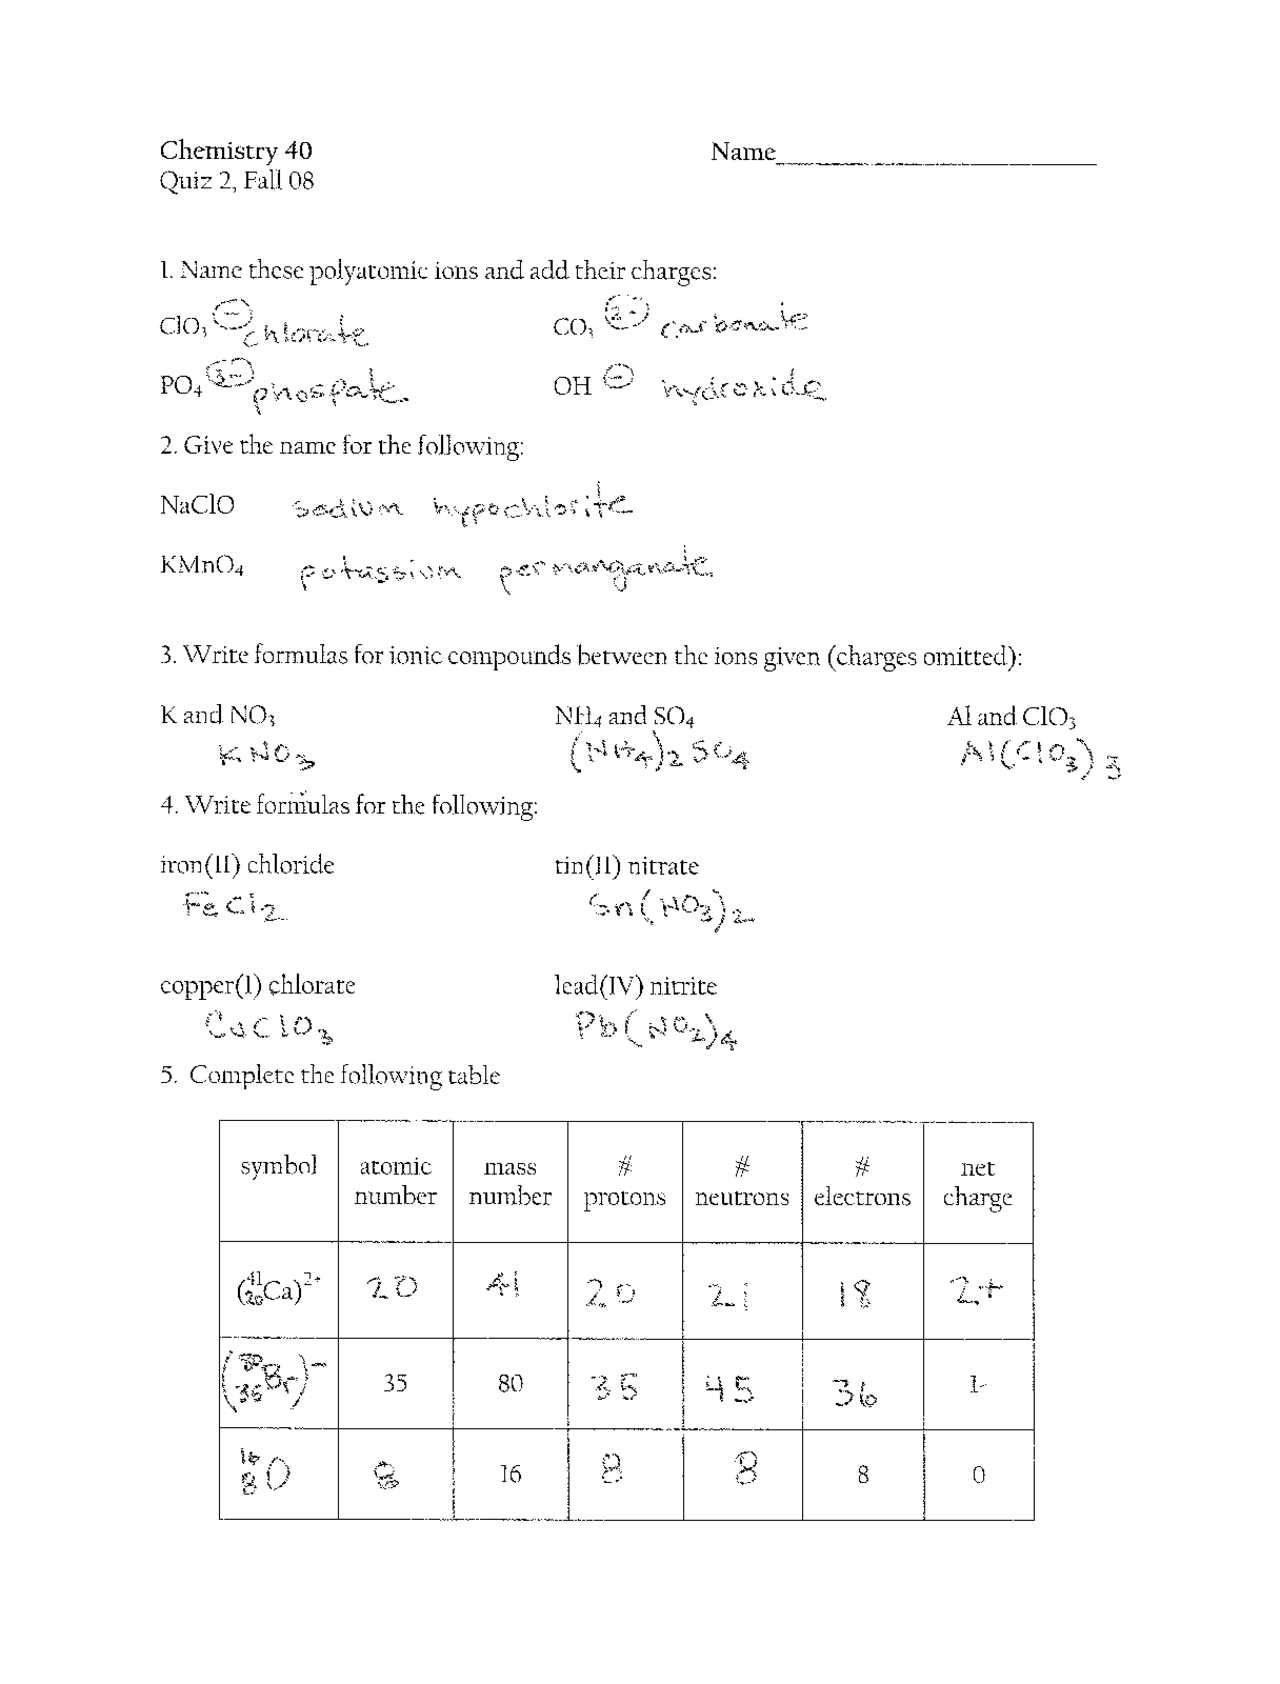 Chemistry 40 Name
Quiz 2, Fall 08
1. Name these polyatomic ions and add their charges:
ClO₃ ⁻ chlorate CO₃ ²⁻ carbonate
PO₄ ³⁻ phospate. OH ⁻ hydroxide
2. Give the name for the following:
NaClO sodium hypochlorite
KMnO₄ potassium permanganate.
3. Write formulas for ionic compounds between the ions given (charges omitted):
K and NO₃ NH₄ and SO₄ Al and ClO₃
KNO₃ (NH₄)₂SO₄ Al(ClO₃)₃
4. Write formulas for the following:
iron(II) chloride tin(II) nitrate
FeCl₂ Sn(NO₃)₂
copper(I) chlorate lead(IV) nitrite
CuClO₃ Pb(NO₂)₄
5. Complete the following table
symbol atomic mass # # # net
number number protons neutrons electrons charge
(⁴¹₂₀Ca)²⁺ 20 41 20 21 18 2+
(⁸⁰₃₅Br)⁻ 35 80 35 45 36 1-
¹⁶₈O 8 16 8 8 8 0